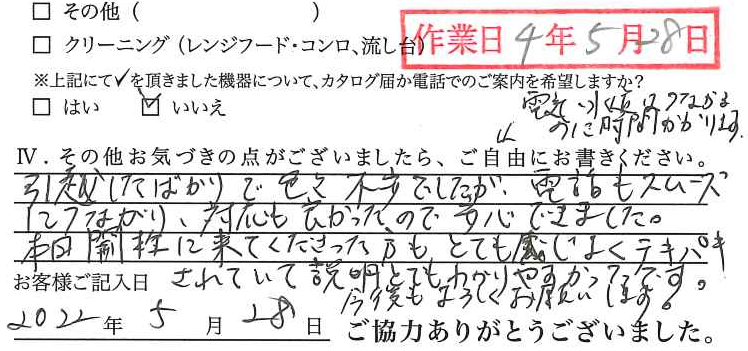 □ その他（　　　　　　　　　）
□ クリーニング（レンジフード・コンロ、流し台）
作業日 4年5月28日
※上記にて✓を頂きました機器について、カタログ届か電話でのご案内を希望しますか？
□ はい ☑ いいえ
電気、
のに時間かかります
Ⅳ．その他お気づきの点がございましたら、ご自由にお書きください。
引越したばかりで色々不安でしたが、電話もスムーズ
につながり、対応も良かったので安心できました。
本日開栓に来てくださった方もとても感じよくテキパキ
されていて説明とてもわかりやすかったです。
今後もよろしくお願いします。
お客様ご記入日
2022年5月28日 ご協力ありがとうございました。